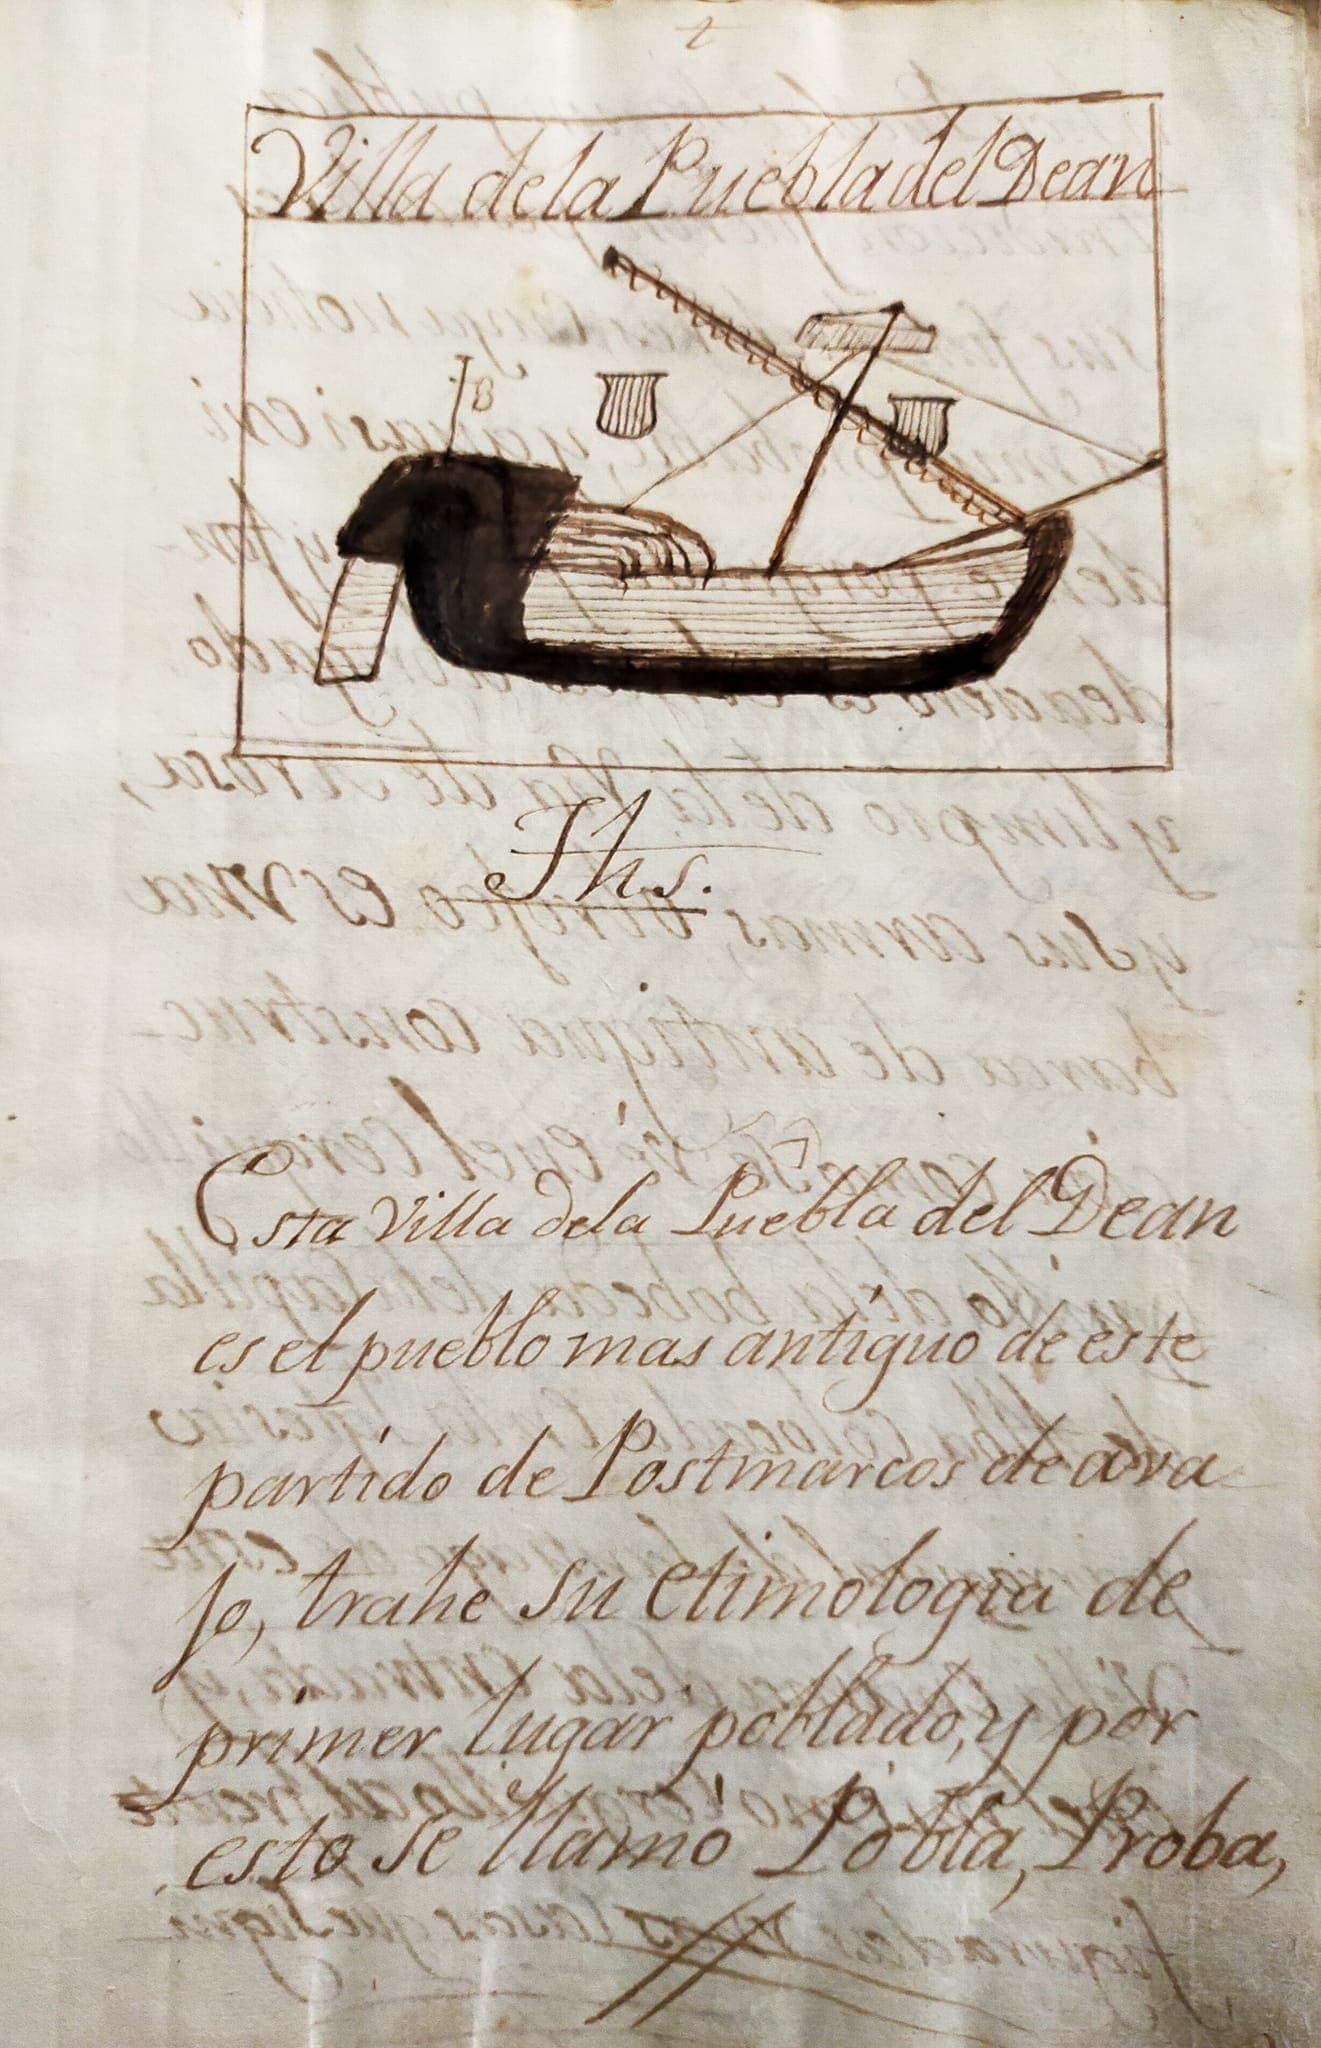 Villa de la Puebla del Dean
Jhs.
Esta Villa dela Puebla del Dean
es el pueblo mas antiguo de este
partido de Postmarcos de ava
jo, trahe su etimologia de
primer lugar poblado, y por
esto se llamó Pobla, Proba,